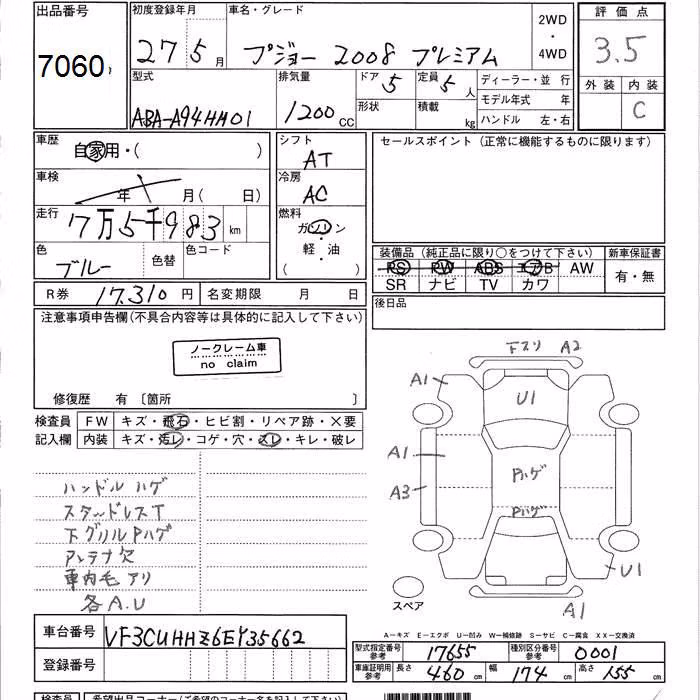 出品番号
7060
初度登録年月
27 5月
車名・グレード
プジョー 2008 プレミアム
2WD
・
4WD
評価点
3.5
外装 内装
C
型式
ABA-A94HH01
排気量
1200cc
ドア 5
形状
定員 5人
積載 kg
ディーラー・並 行
モデル年式 年
ハンドル 左・右
車歴
自家用・( )
シフト
AT
セールスポイント(正常に機能するものに限ります)
車検
年 月( 日)
冷房
AC
走行
7万5千983km
燃料
ガソリン
・
軽・油
( )
色
ブルー
色替
色コード
装備品(純正品に限り○をつけて下さい) 新車保証書
PS PW ABS エアB AW
SR ナビ TV カワ
有・無
R券 17,310円 名変期限 月 日
後日品
注意事項申告欄(不具合内容等は具体的に記入して下さい)
ノークレーム車
no claim
修復歴 有〔箇所 〕
検査員
記入欄
FW キズ・飛石・ヒビ割・リペア跡・×要
内装 キズ・汚レ・コゲ・穴・スレ・キレ・破レ
ハンドルハゲ
スタッドレスT
下グリルPハゲ
アンテナ欠
車内毛アリ
各A.U
下スリ A2
A1
U1
A1
A3
Pハゲ
Pハゲ
U1
A1
スペア
A―キズ E―エクボ U―凹み W―補修跡 S―サビ C―腐食 XX―交換済
車台番号 VF3CUHHZ6EY35662
登録番号
型式指定番号
参考
17655
種別区分番号
参考
0001
車庫証明用
参考
長さ 460cm 幅 174cm 高さ 155cm
検査員 希望出品コーナー(ご希望のコーナー名を記入下さい)